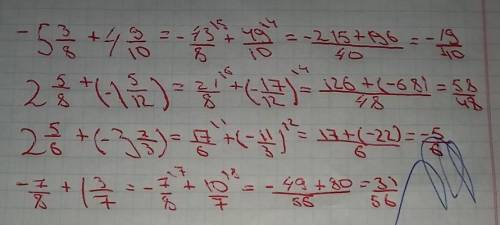 -5 3/8 + 4 9/10 = -43/8 ^15 + 49/10 ^14 = -215+196/40 = -19/40
2 5/8 + (-1 5/12) = 21/8 ^16 + (-17/12) ^14 = 126+(-68)/48 = 58/48
2 5/6 + (-3 2/3) = 17/6 ^11 + (-11/3) ^12 = 17+(-22)/6 = -5/6
-7/8 + 1 3/7 = -7/8 ^17 + 10/7 ^18 = -49+80/56 = 31/56